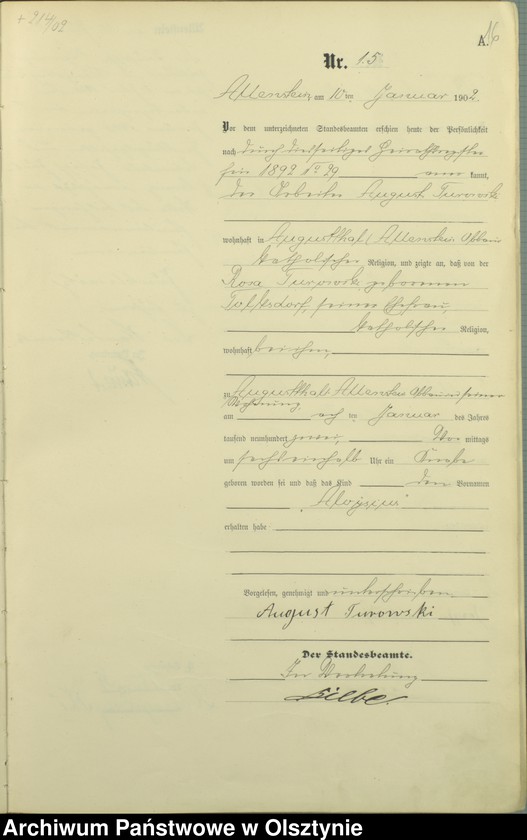 + 914/02
A. 16
Nr. 15
Allenstein am 10 ten Januar 1902.
Vor dem unterzeichneten Standesbeamten erschien heute der Persönlichkeit
nach durch diesseitiges Heirathsregister
1892 No 29 kannt,
der Arbeiter August Turowski
wohnhaft in Augustthal, Allenstein Abbau
katholischer Religion, und zeigte an, daß von der
Rosa Turowski geborenen
Tolksdorf, seiner Ehefrau,
katholischer Religion,
wohnhaft bei ihm,
zu Augustthal, Allenstein Abbau in seiner
Wohnung
am acht ten Januar des Jahres
tausend neunhundert zwei, Vor mittags
um sechseinhalb Uhr ein Knabe
geboren worden sei und daß das Kind den Vornamen
"Aloysius"
erhalten habe
Vorgelesen, genehmigt und unterschrieben
August Turowski
Der Standesbeamte.
In Vertretung
Archiwum Państwowe w Olsztynie